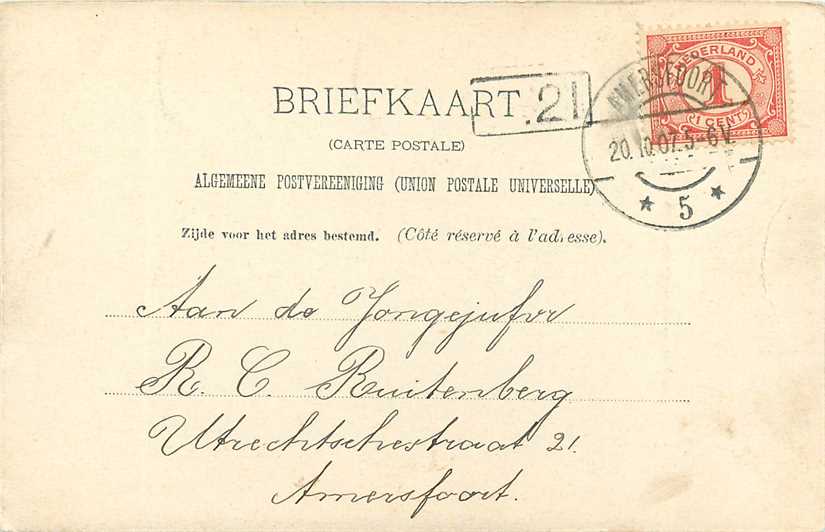 BRIEFKAART
(CARTE POSTALE)
ALGEMEENE POSTVEREENIGING (UNION POSTALE UNIVERSELLE)
Zijde voor het adres bestemd. (Côté réservé à l'adresse).
21
NEDERLAND
1
(1 CENT)
20.10.07.5 6V.
5
Aan de Jongejufvr
R. C. Ruitenberg
Utrechtschestraat 21.
Amersfoort.